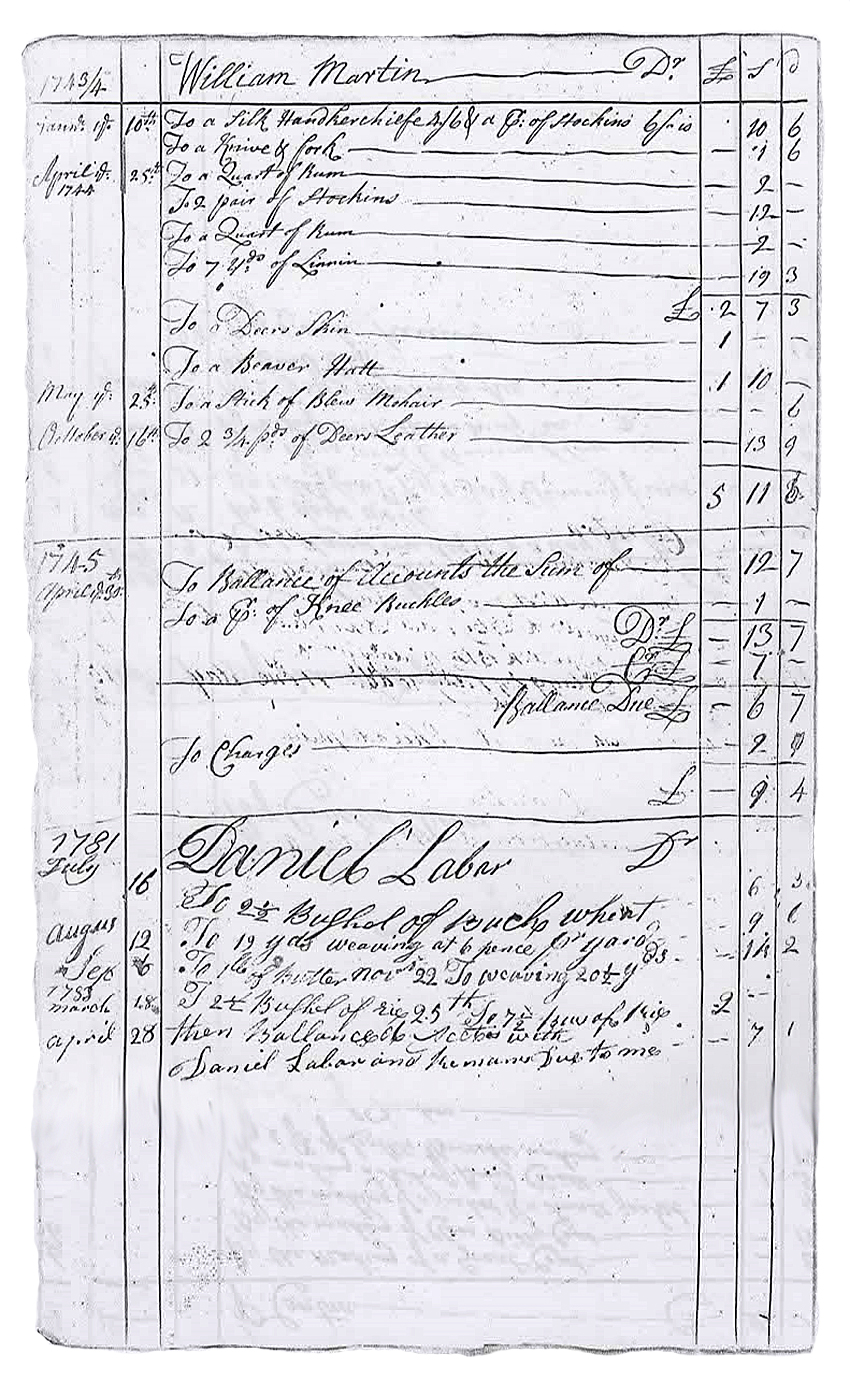 1743/4 William Martin Dr. £ S d
Janry. ye. 10th. To a Silk Handkerchife & a Pr. of Stockins 6/ is 10 6
To a Knive & fork — 1 6
April ye. 25th. To a Quart of Rum — 2 —
1744 To 2 pair of Stockins — 12 —
To a Quart of Rum — 2 —
To 7 yds. of Linnin — 19 3
£ 2 7 3
To a Deers Skin 1 — —
To a Beaver Hatt 1 10 —
May ye. 25th. To a Stick of Blew Mohair — — 6
October ye. 16th. To 2 3/4 pds of Deers Leather — 13 9
5 11 6
1745
April ye. 30th To Ballance of Accounts the Sum of 12 7
To a Pr. of Knee Buckles — 1 —
Dr. £ — 13 7
Cr. £ — 7 —
Ballance Due £ — 6 7
To Charges — 2 9
£ — 9 4
1781 Daniel Labar Dr
July 16 To 2½ Bushel of Buck wheat 6 3
Augus 12 To 19 yds weaving at 6 pence pr yard 9
Sep 6 To 1 lb of Butter Novr 22 To weaving 20½ yds — 14 2
1783
march 18 T 2½ Bushel of Rie 25th To 7½ of Rie 2
april 28 then Ballanced Acctes with — 7 1
Daniel Labar and Remans Due to me